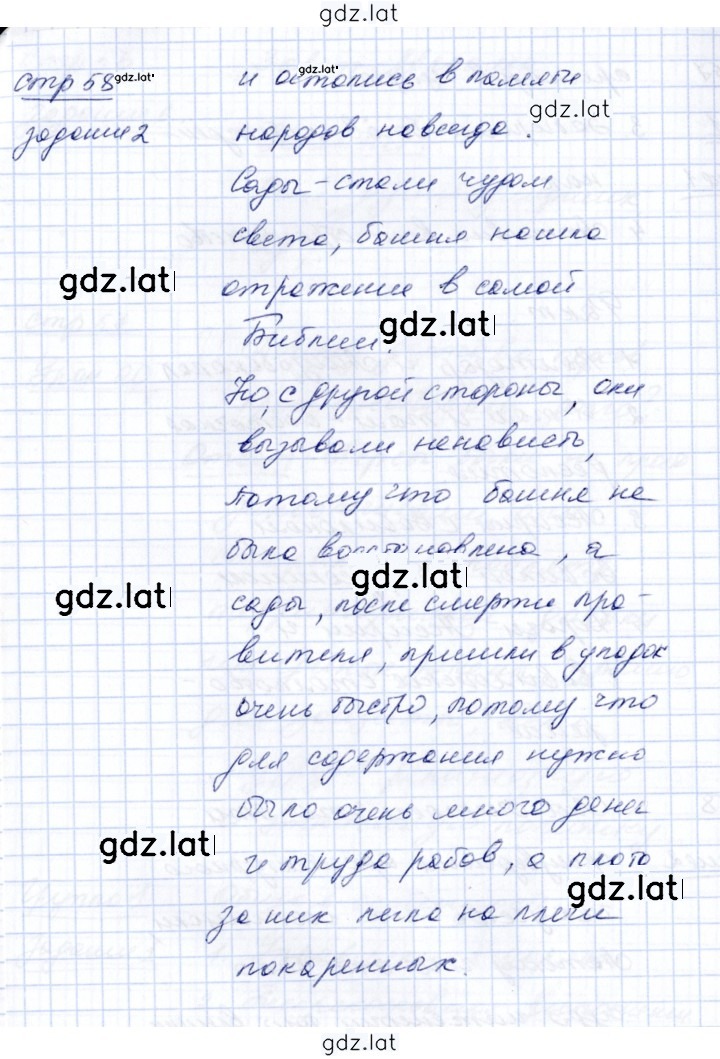 gdz.lat
стр 58 gdz.lat и остались в памяти gdz.lat
задание 2 народов навсегда. gdz.lat
Сады - стали чудом
света, башня нашла
gdz.lat отражение в самой
Библии. gdz.lat
Но, с другой стороны, они
вызывали ненависть,
потому что башня не
была восстановлена, а
gdz.lat gdz.lat
сады, после смерти пра-
вителя, пришли в упадок
очень быстро, потому что
для содержания нужно
было очень много денег
gdz.lat и труда рабов, а плата
gdz.lat
за них легла на плечи
покаренных.
gdz.lat